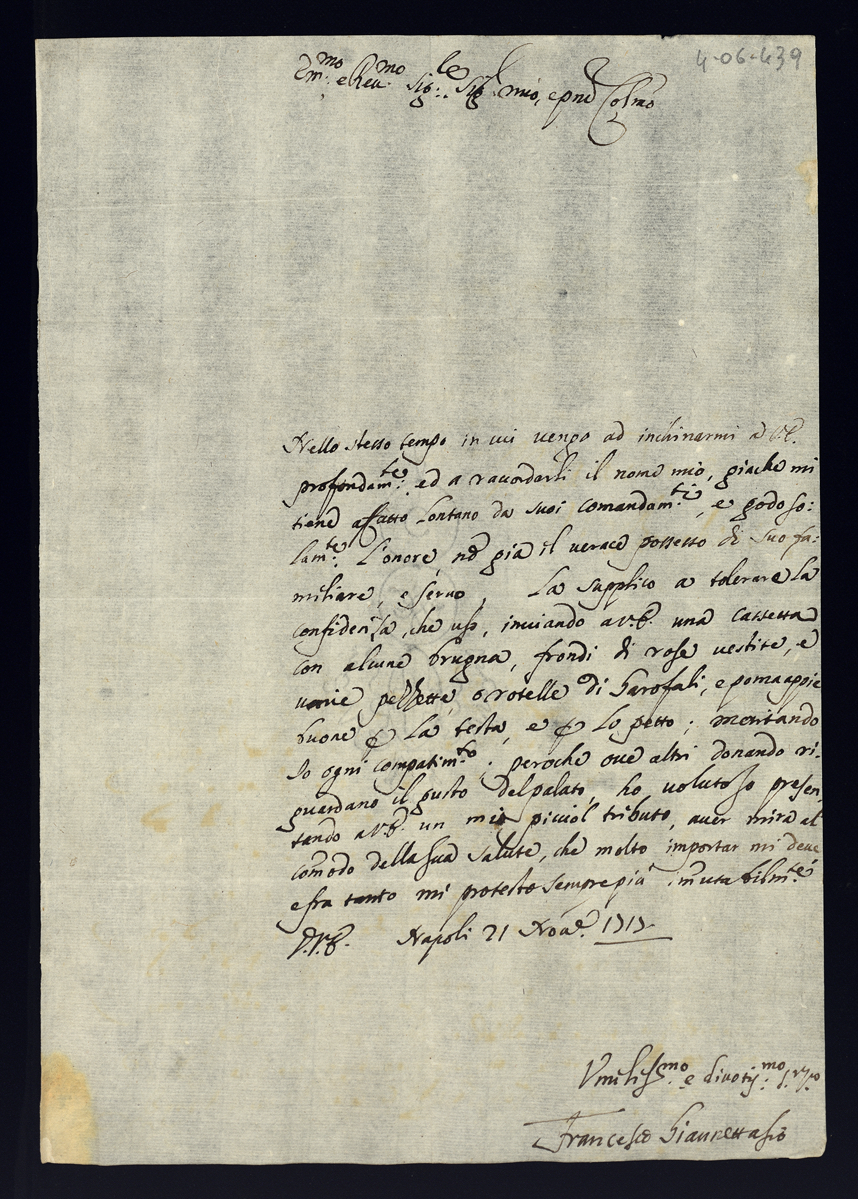 4-06-439
Em.mo e Reu.mo Sig.re Sig.r mio, e pnē Colmo
Nello stesso tempo in cui uengo ad inchinarmi a V.E.
profondam.te, ed a raccordarli il nome mio, giache mi
tiene affatto lontano da suoi comandam.ti, e godo so:
lam.te l'onore, nō già il uerace possesso di suo fa:
miliare, e seruo, La supplico a tolerare la
confidenza, che uso, inuiando a V.E. una cassetta
con alcune brugna, frondi di rose uestite, e
uarie pezzette, o rotelle di Garofali, e poma appie
buone ꝑ la testa, e ꝑ lo petto; meritando
Io ogni compatim.to; peroche oue altri donando ri:
guardano il gusto del palato, ho uoluto io presen,
tando a V.E. un mio picciol tributo, auer mira al
comodo della sua salute, che molto importar mi deue
e fra tanto mi protesto sempre più immutabilm.te
D.V.E. Napoli 21 Nou.e 1717
Vmiliss.mo e diuotiss.mo S.re V.ro
Francesco Giannettasio